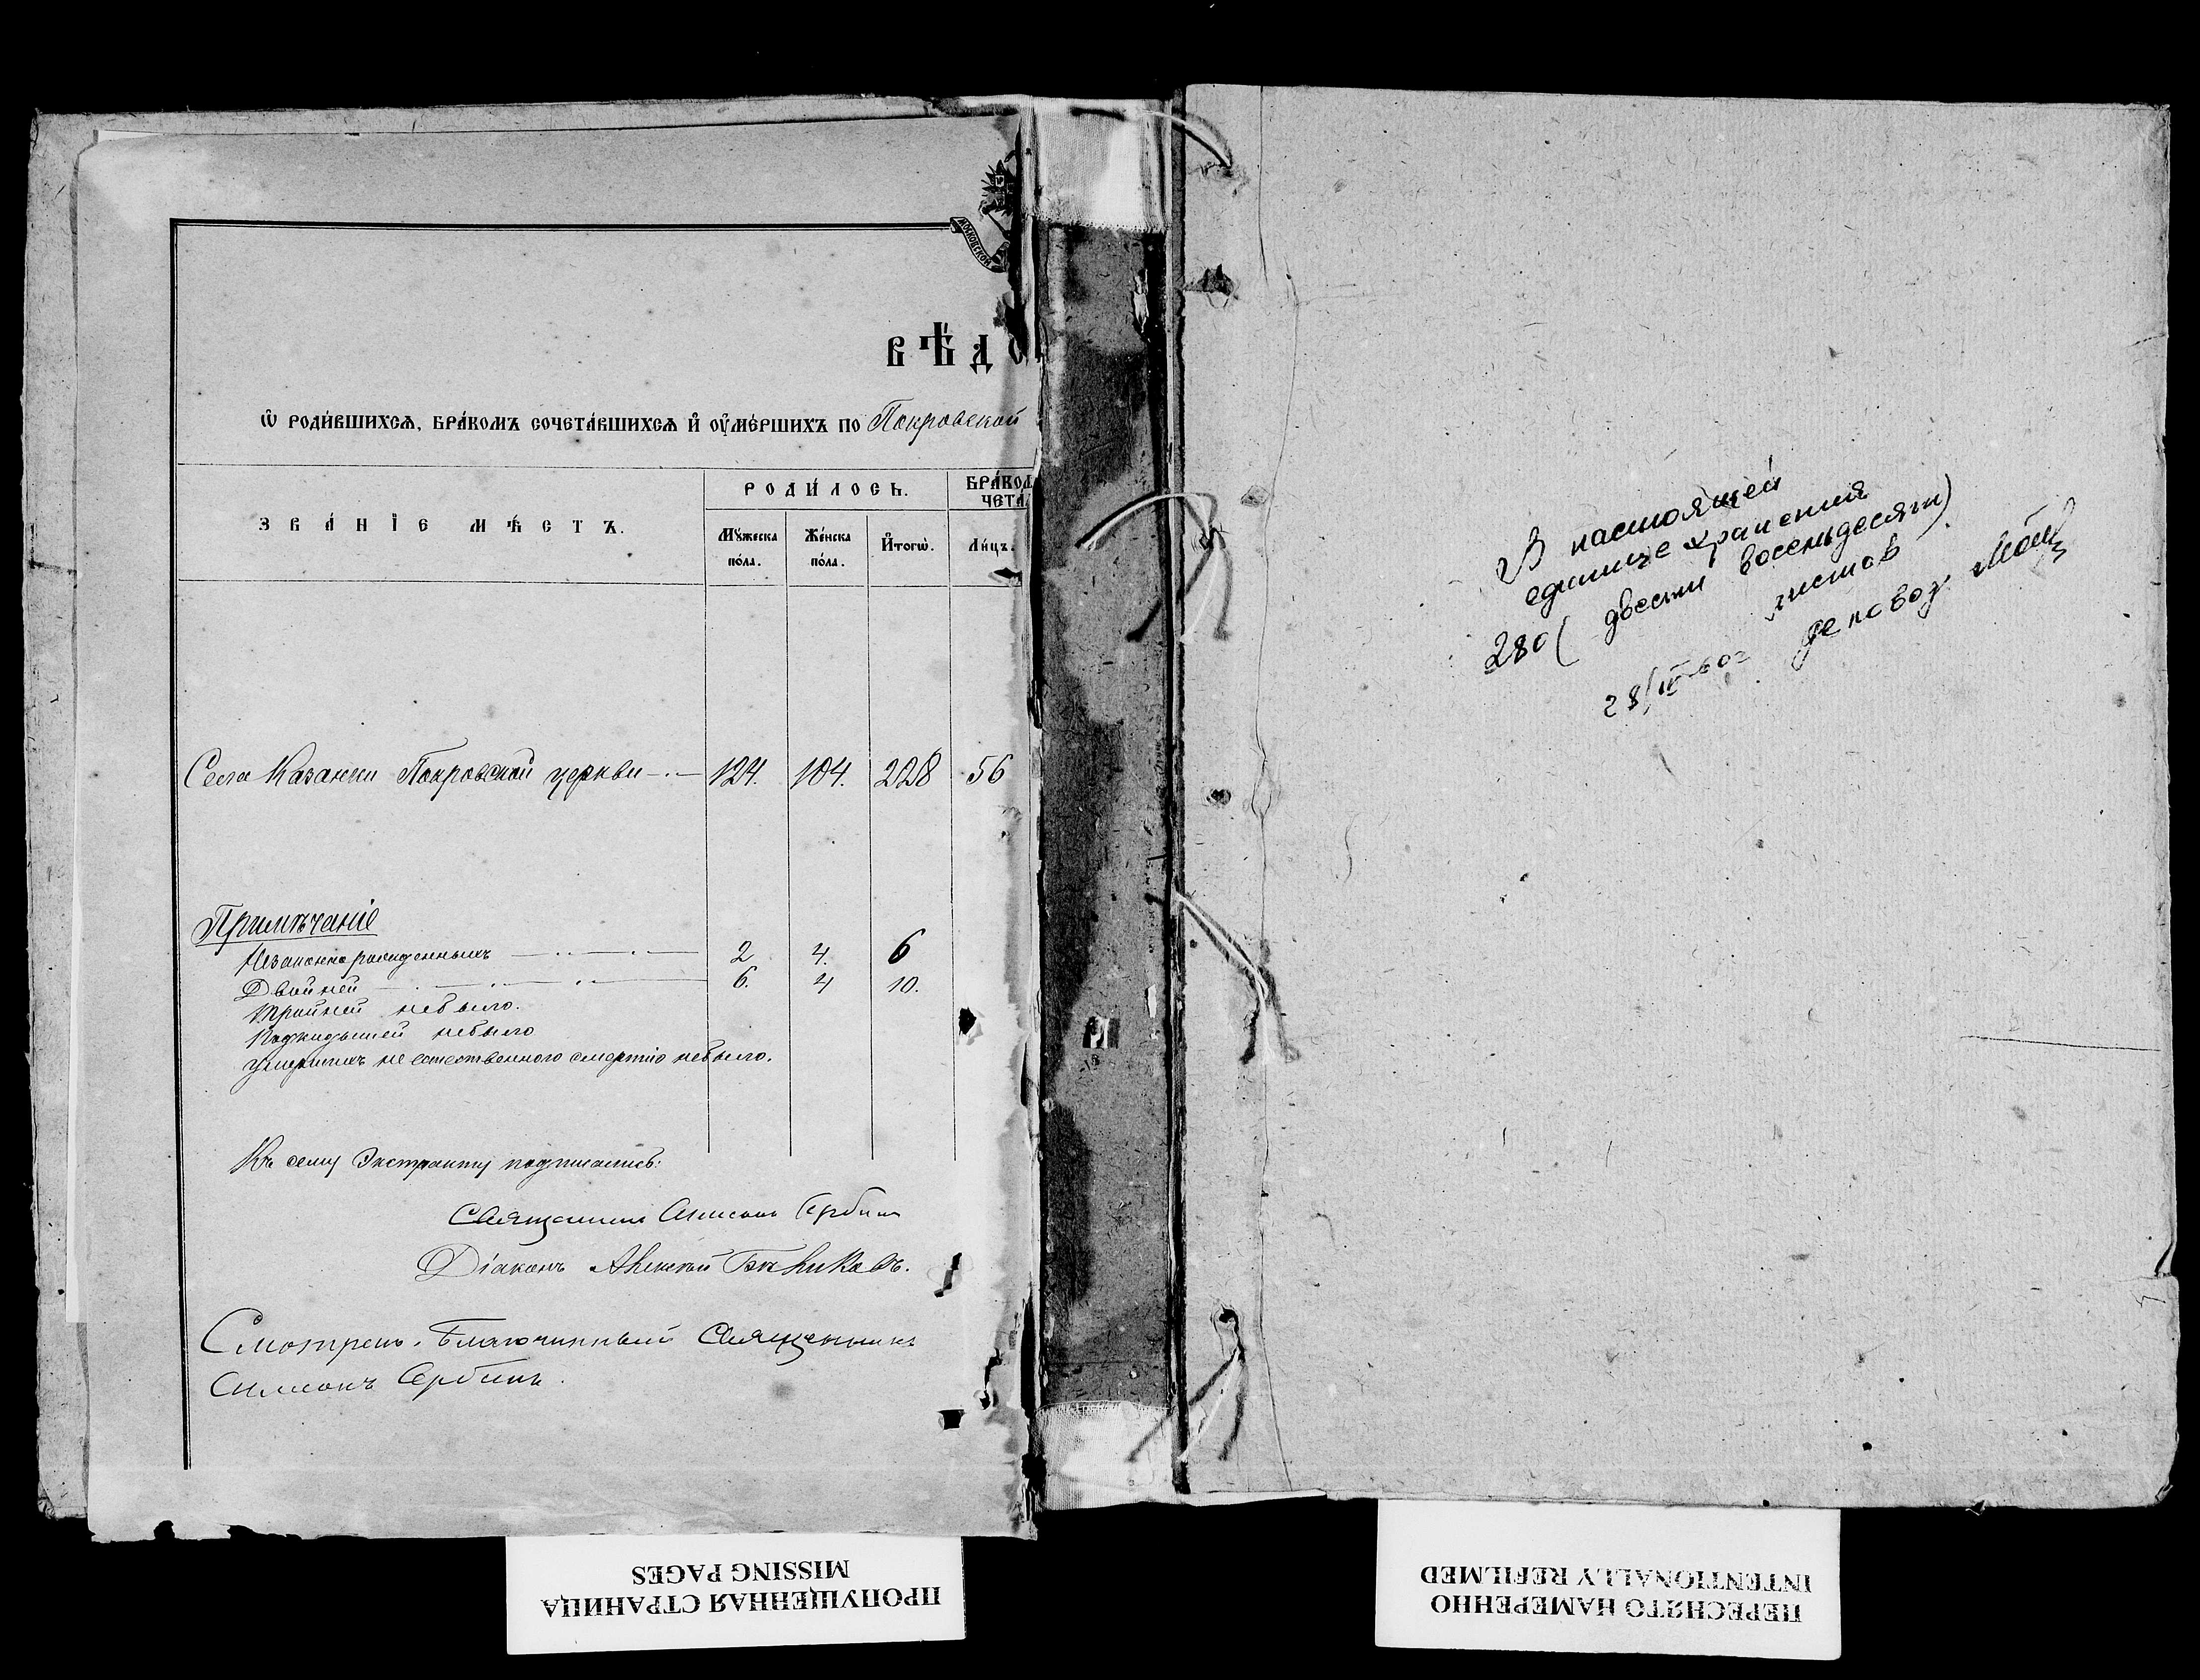 МОСКОВСКОЙ
ВѢДО
Ѡ РОДИ́ВШИХСѦ, БРА́КОМЪ СОЧЕТА́ВШИХСѦ И҆ ОУ҆МЕ́РШИХЪ ПО Покровской
ЗВА́НІЕ МѢ́СТЪ.
РОДИ́ЛОСЬ.
БРА́КОМ
ЧЕТА́
Мꙋ́жеска по́ла.
Же́нска по́ла.
И҆тогѡ̀.
Ли́цъ.
Села Казанки Покровской церкви 124. 104. 228 56
Примѣчаніе
Незаконнорожденныхъ 2 4. 6
Двойней 6. 4 10.
Тройней небыло.
Подкидышей небыло
Умершихъ не естественного смертію небыло.
Къ сему Экстракту подписались:
Священникъ Симеонъ Сербинъ
Діаконъ Алексѣй
Смотрелъ. Благочинный Священникъ
Симеонъ Сербинъ.
В настоящей
единице хранения
280 (двести восемьдесят)
листов
28/IV-60г
ПРОПУЩЕННАЯ СТРАНИЦА
MISSING PAGES
ПЕРЕСНЯТО НАМЕРЕННО
INTENTIONALLY REFILMED